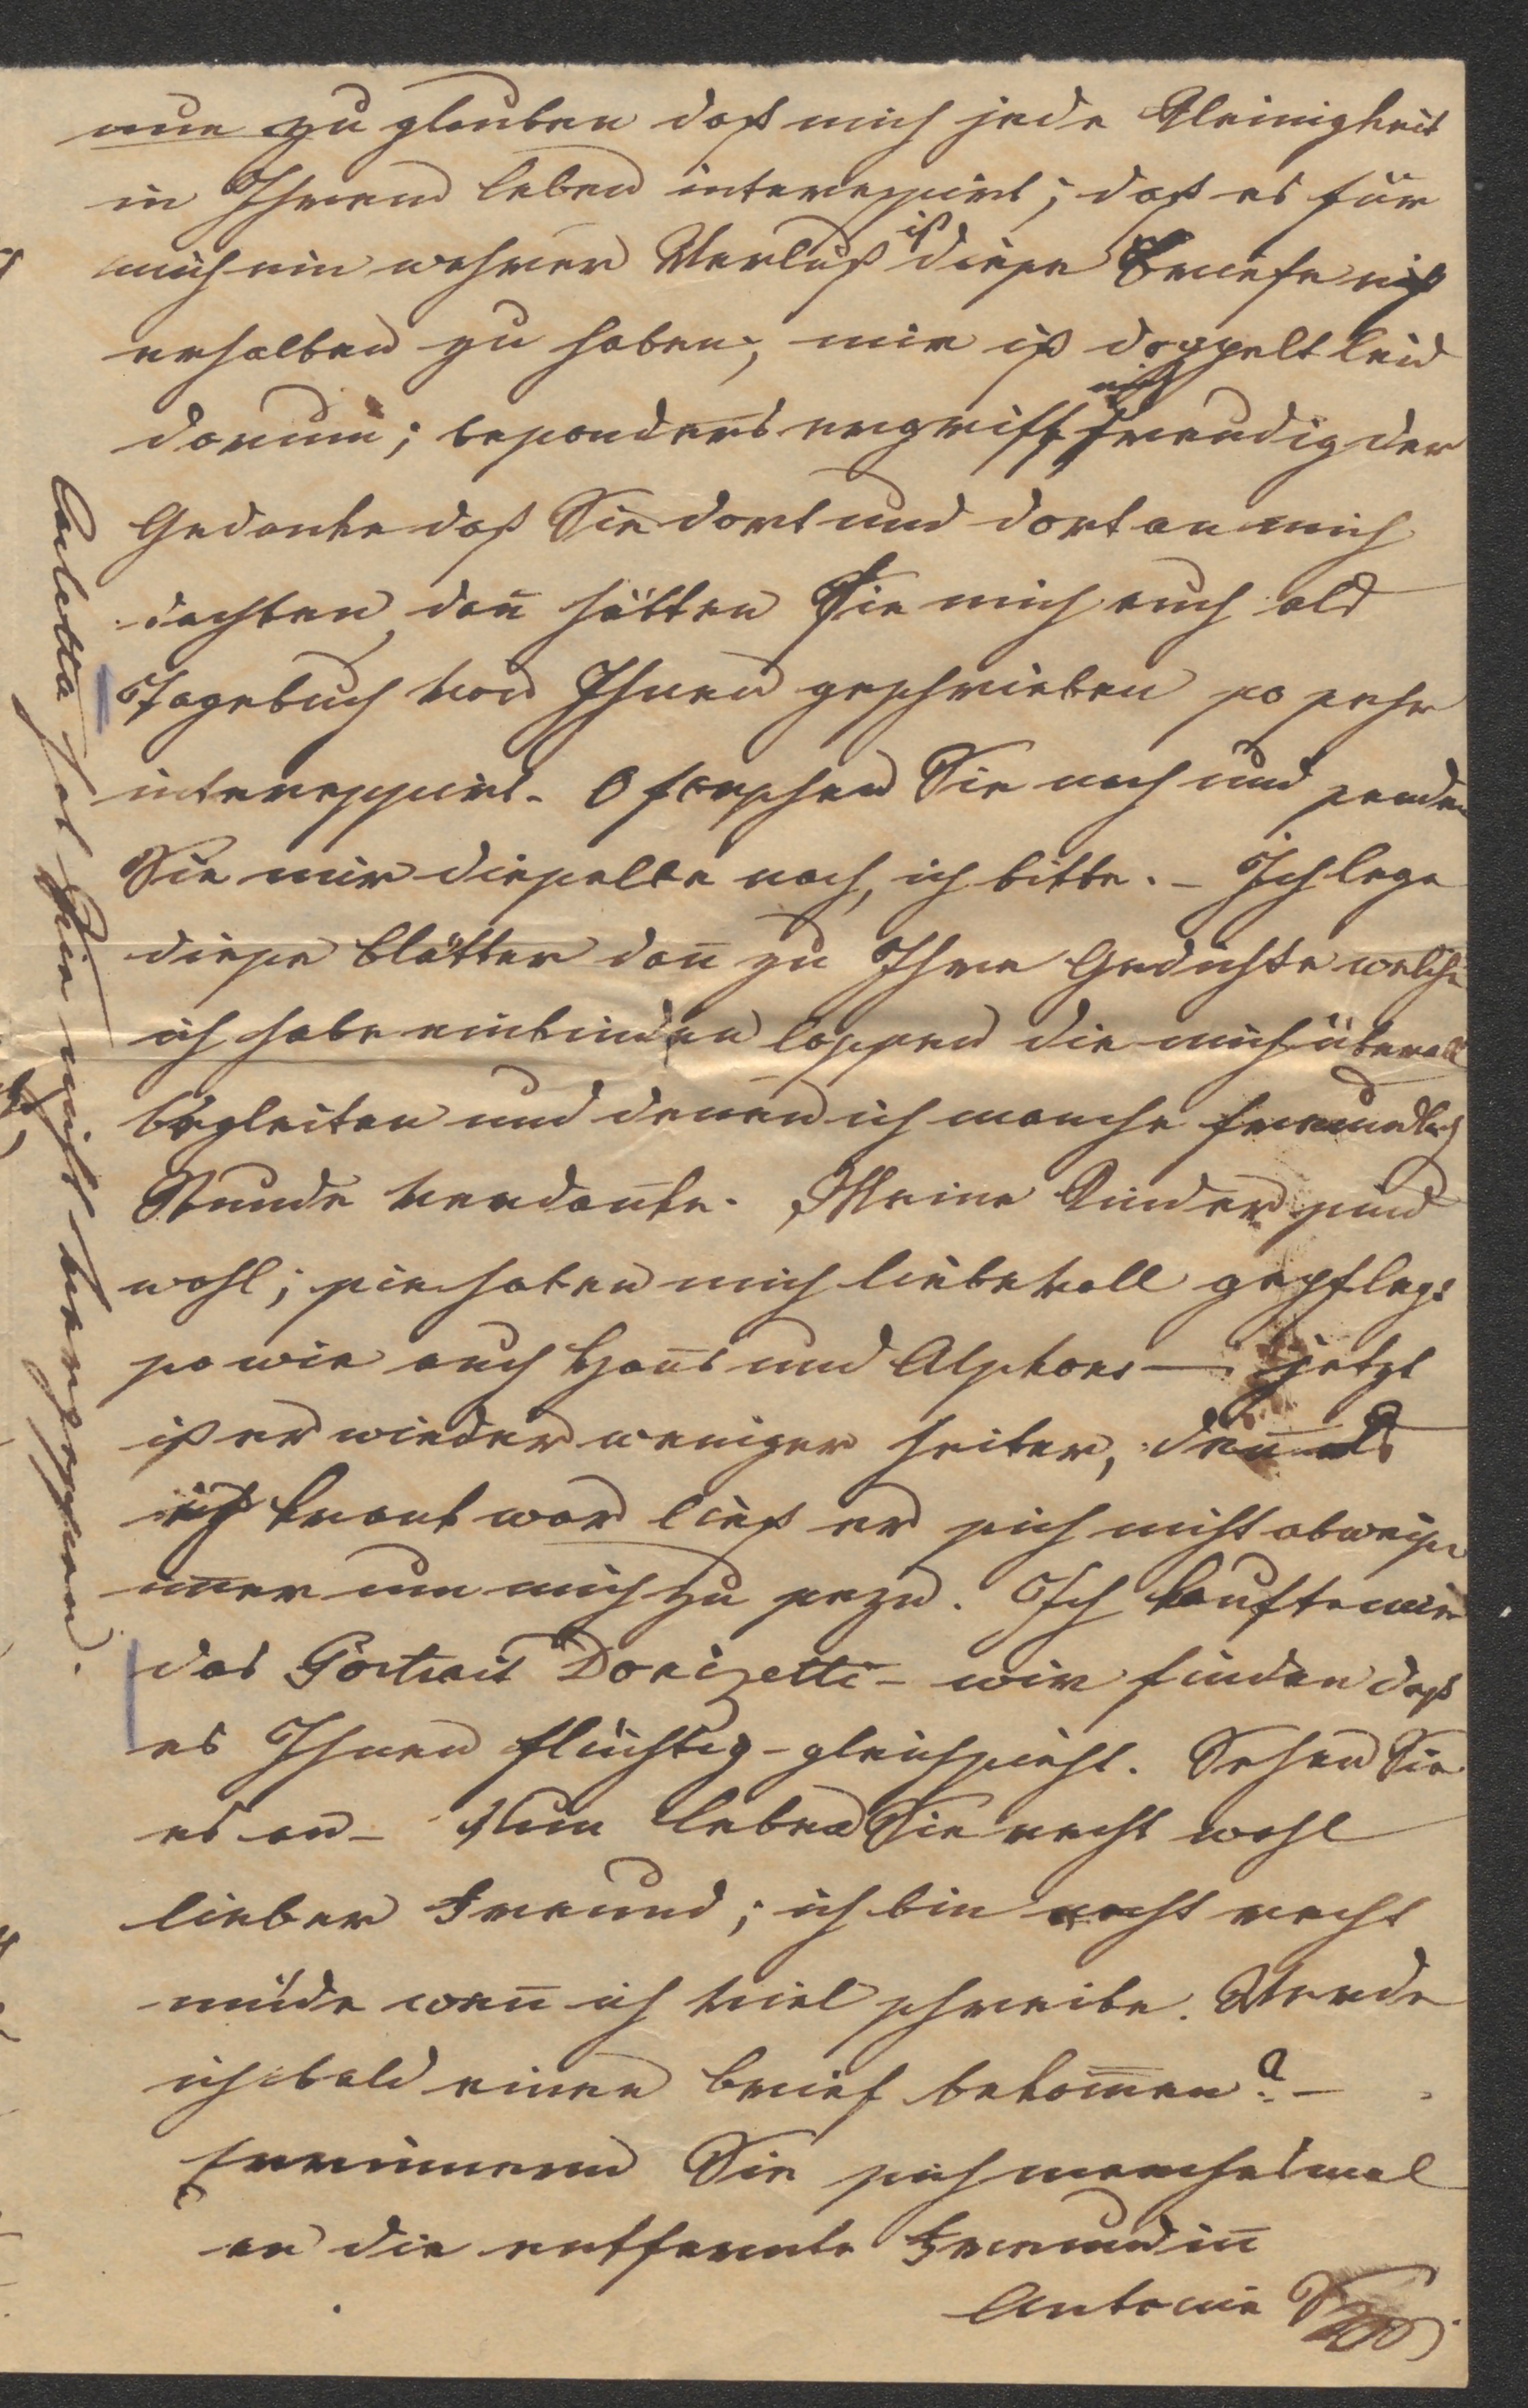 nun zu glauben daß mich jede Kleinigkeit
in Ihrem Leben interessirt; daß es für
mich ein wahrer Verlust ist diese Briefe nicht
erhalten zu haben; mir ist doppelt leid
darum; besonders ergriff mich freudig der
Gedanke daß Sie dort und dort an mich
dachten, dañ hätten Sie mich auch als
Tagebuch von Ihnen geschrieben so sehr
interessirt. O forschen Sie nach und senden
Sie mir dieselbe nach, ich bitte. – Ich lege
diese Blätter dañ zu Ihre Gedichte welche
ich habe einbinden lassen die mich überall
begleiten und denen ich manche freundlich
Stunde verdanke. Meine Kinder sind
wohl; sie haben mich liebevoll gepflegt
so wie auch Hans und Alphons – jetzt
ist er wieder weniger heiter, den als
ich krank war ließ er sich nicht abweisen
imer um mich zu seyn. Ich kaufte mir
das Portrait Donizetti – wir finden daß
es Ihnen flüchtig – gleichsieht. Sehen Sie
es an – Nun leben Sie recht wohl
lieber Freund; ich bin recht
müde weñ ich viel schreibe. Werde
ich bald einen Brief bekomen? –
Erinnern Sie sich manchesmal
an die entfernte Freundiñ
Antonie
hat Sie nicht vergessen.